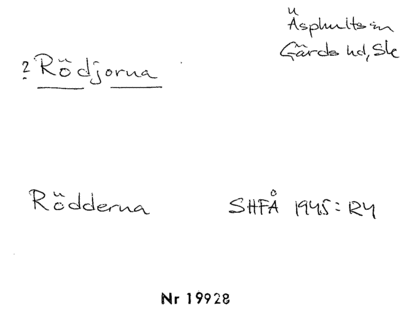 Äsphults sn
Gärds hd, Sk
? Rödjorna
Rödderna SHFÅ 1945: R4
Nr 19928